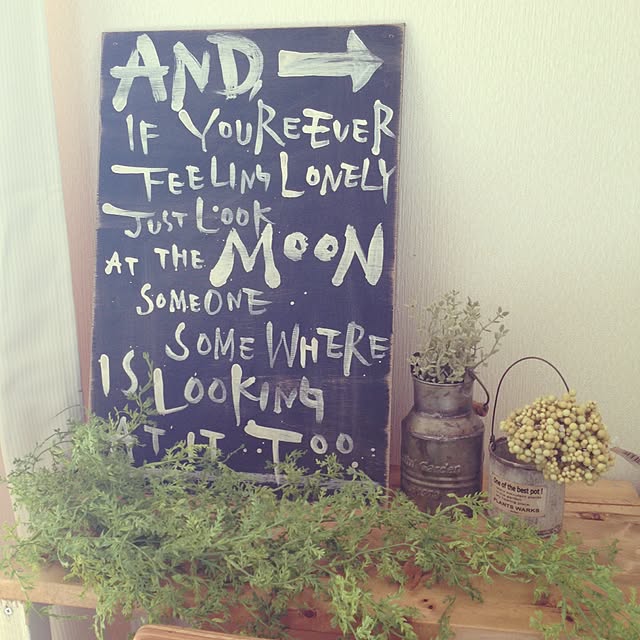 AND,
IF YOU'RE EVER
FEELING LONELY
JUST LOOK
AT THE MOON
SOMEONE
SOMEWHERE
IS LOOKING
AT IT TOO
Garden
One of the best pot!
PLANTS WARKS